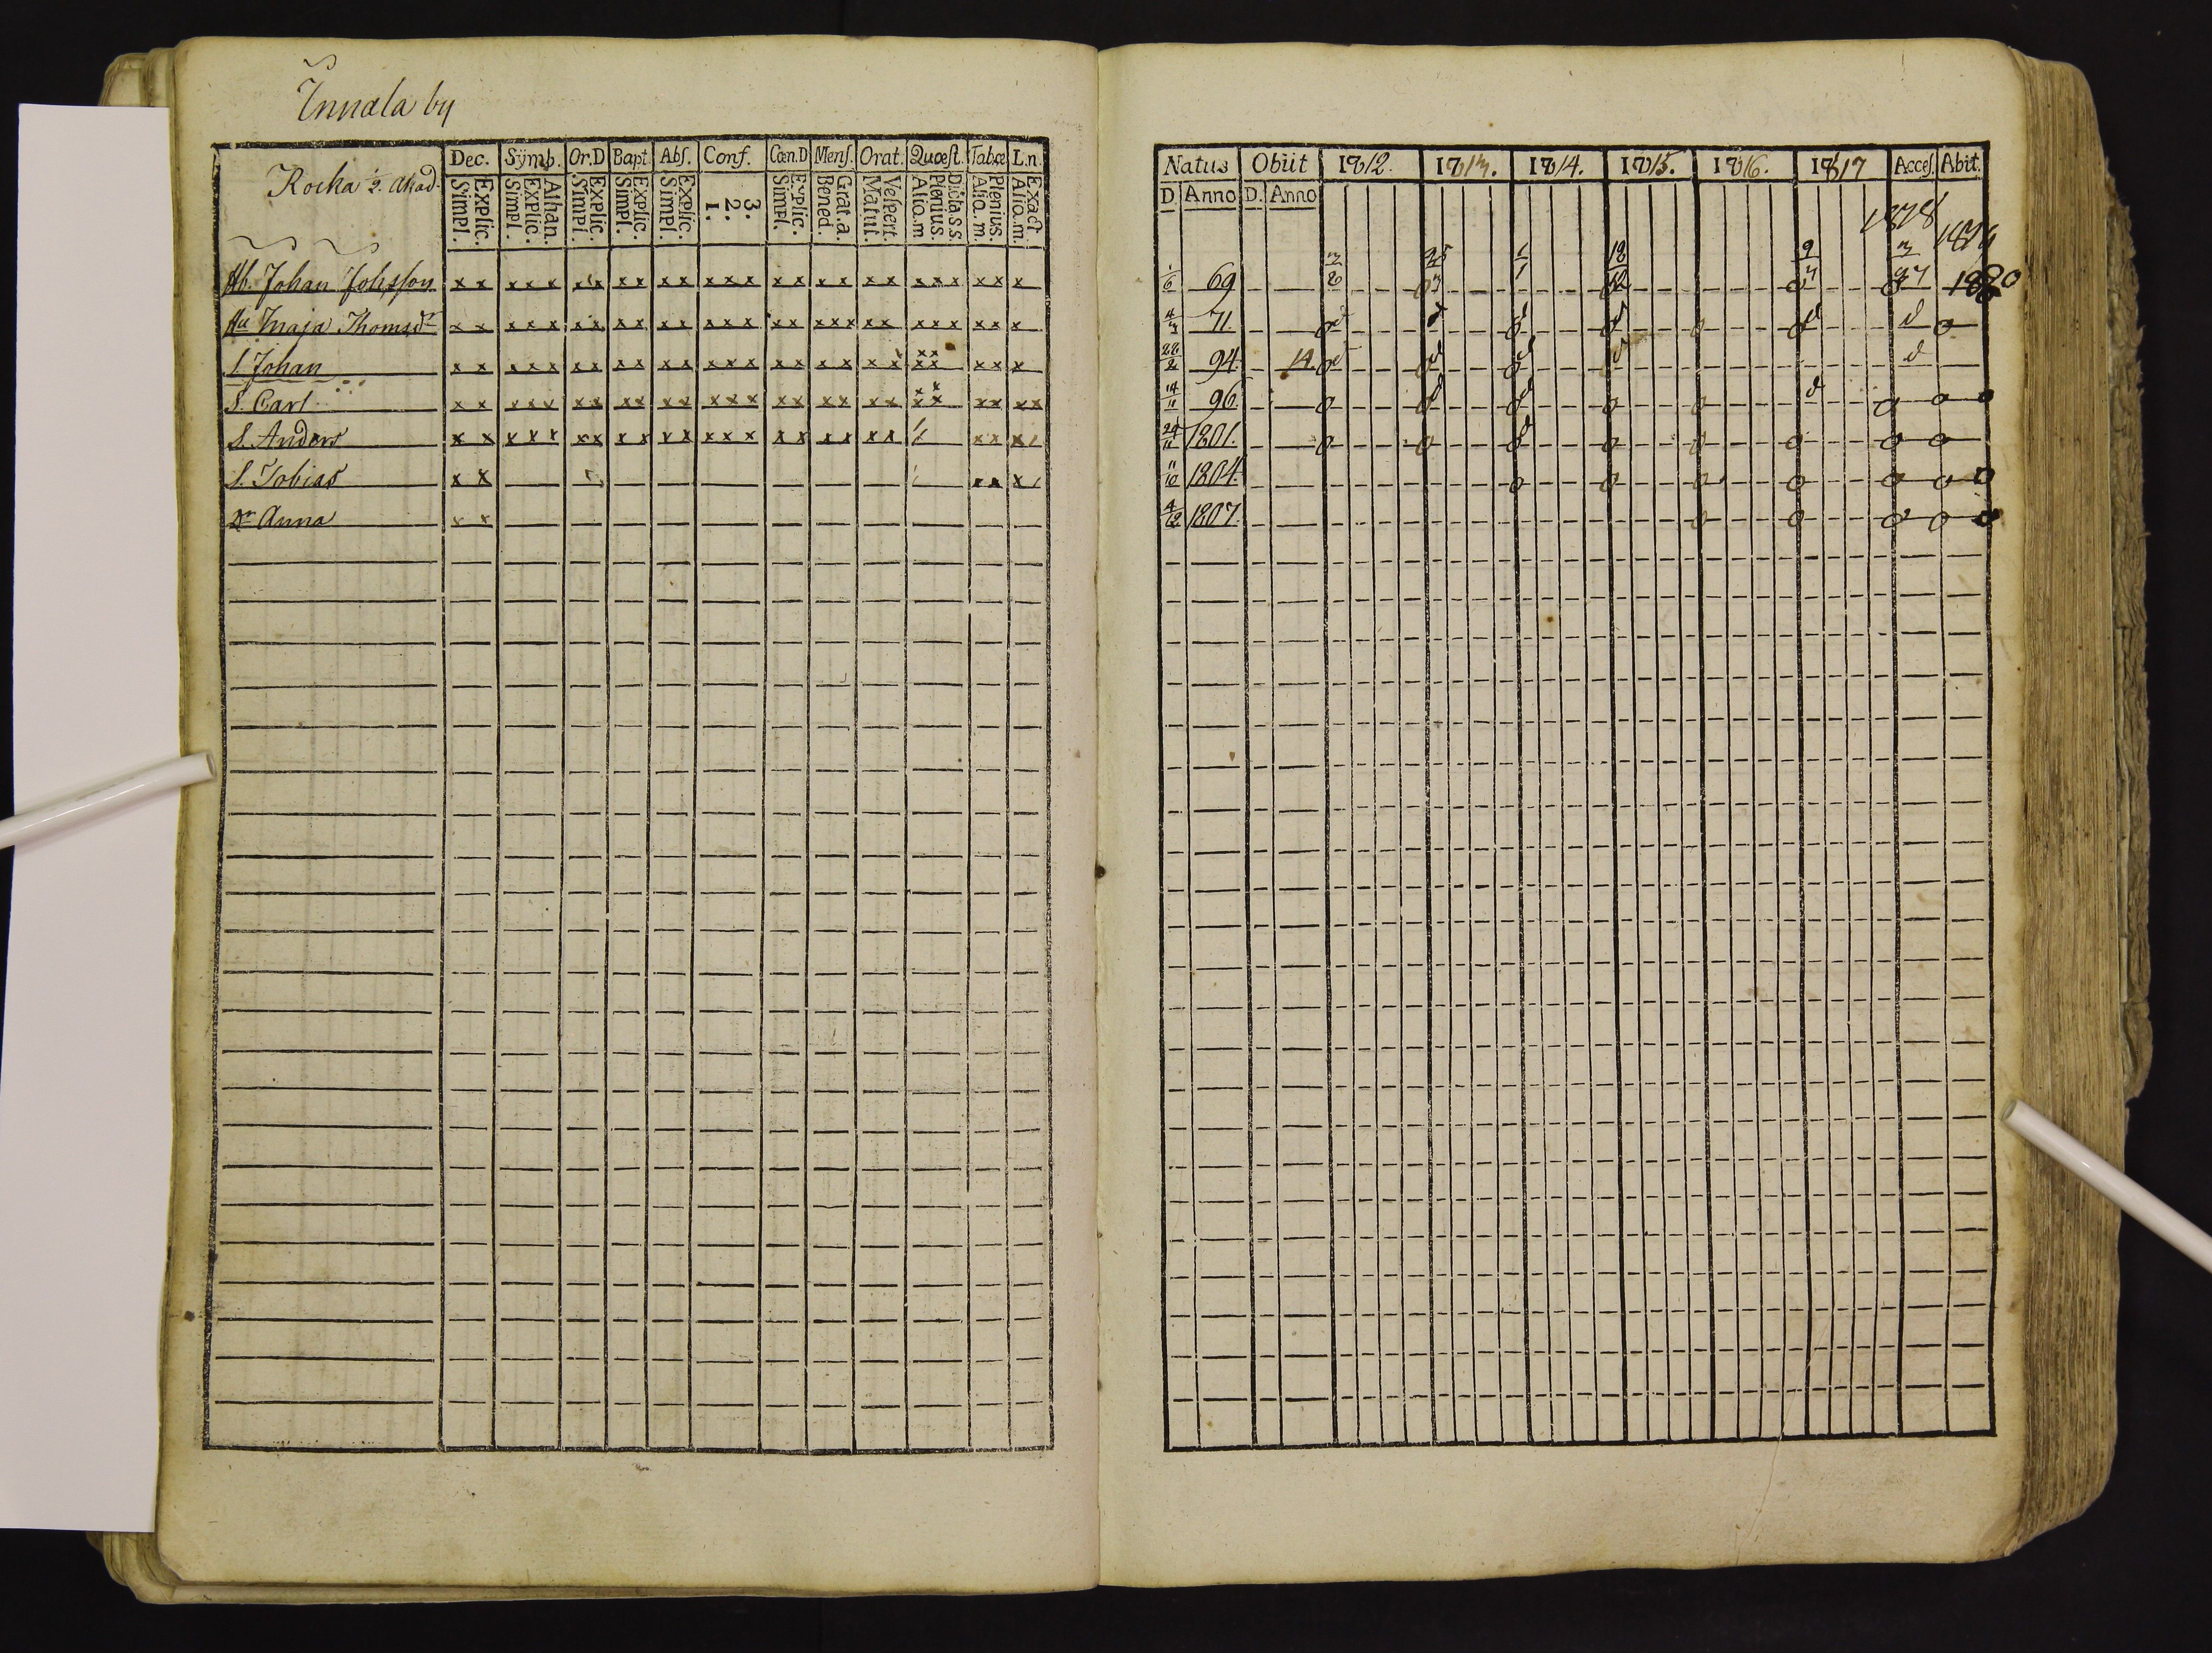 Innala by
Rocka ½. Akad.
Dec. Sÿmb. Or.D Bapt. Abs. Conf. Cœn.D Mens. Orat. Quæst. Tabæ L.n.
Simpl. Explic. Simpl. Explic. Athan. Simpl. Explic. Simpl. Explic. Simpl. Explic. 1. 2. 3. Simpl. Explic. Bened. Grat.a. Matut. Vespert. Alio.m Plenius. Dicta.s.s. Alio.m. Plenius. Alio.m. Exact
Hb. Johan Johsson x x x x x x x x x x x x x x x x x x x x x x x x x x
Hu Maja Thomsdr x x x x x x x x x x x x x x x x x x x x x x x x x x x
S. Johan x x x x x x x x x x x x x x x x x x x x x x x x x x x
S. Carl x x x x x x x x x x x x x x x x x x x x x x x x x x x x
S. Anders x x x x x x x x x x x x x x x x x x x x x x x x
S. Tobias x x x x x
Dr Anna x x
Natus Obiit 1812. 1813. 1814. 1815. 1816. 1817 Acces. Abit.
D. Anno D. Anno
1818 1819
1/6 69 1820
71.
28/2 94. 14.
14/11 96
24/11 1801.
11/10 1804.
4/12 1807.